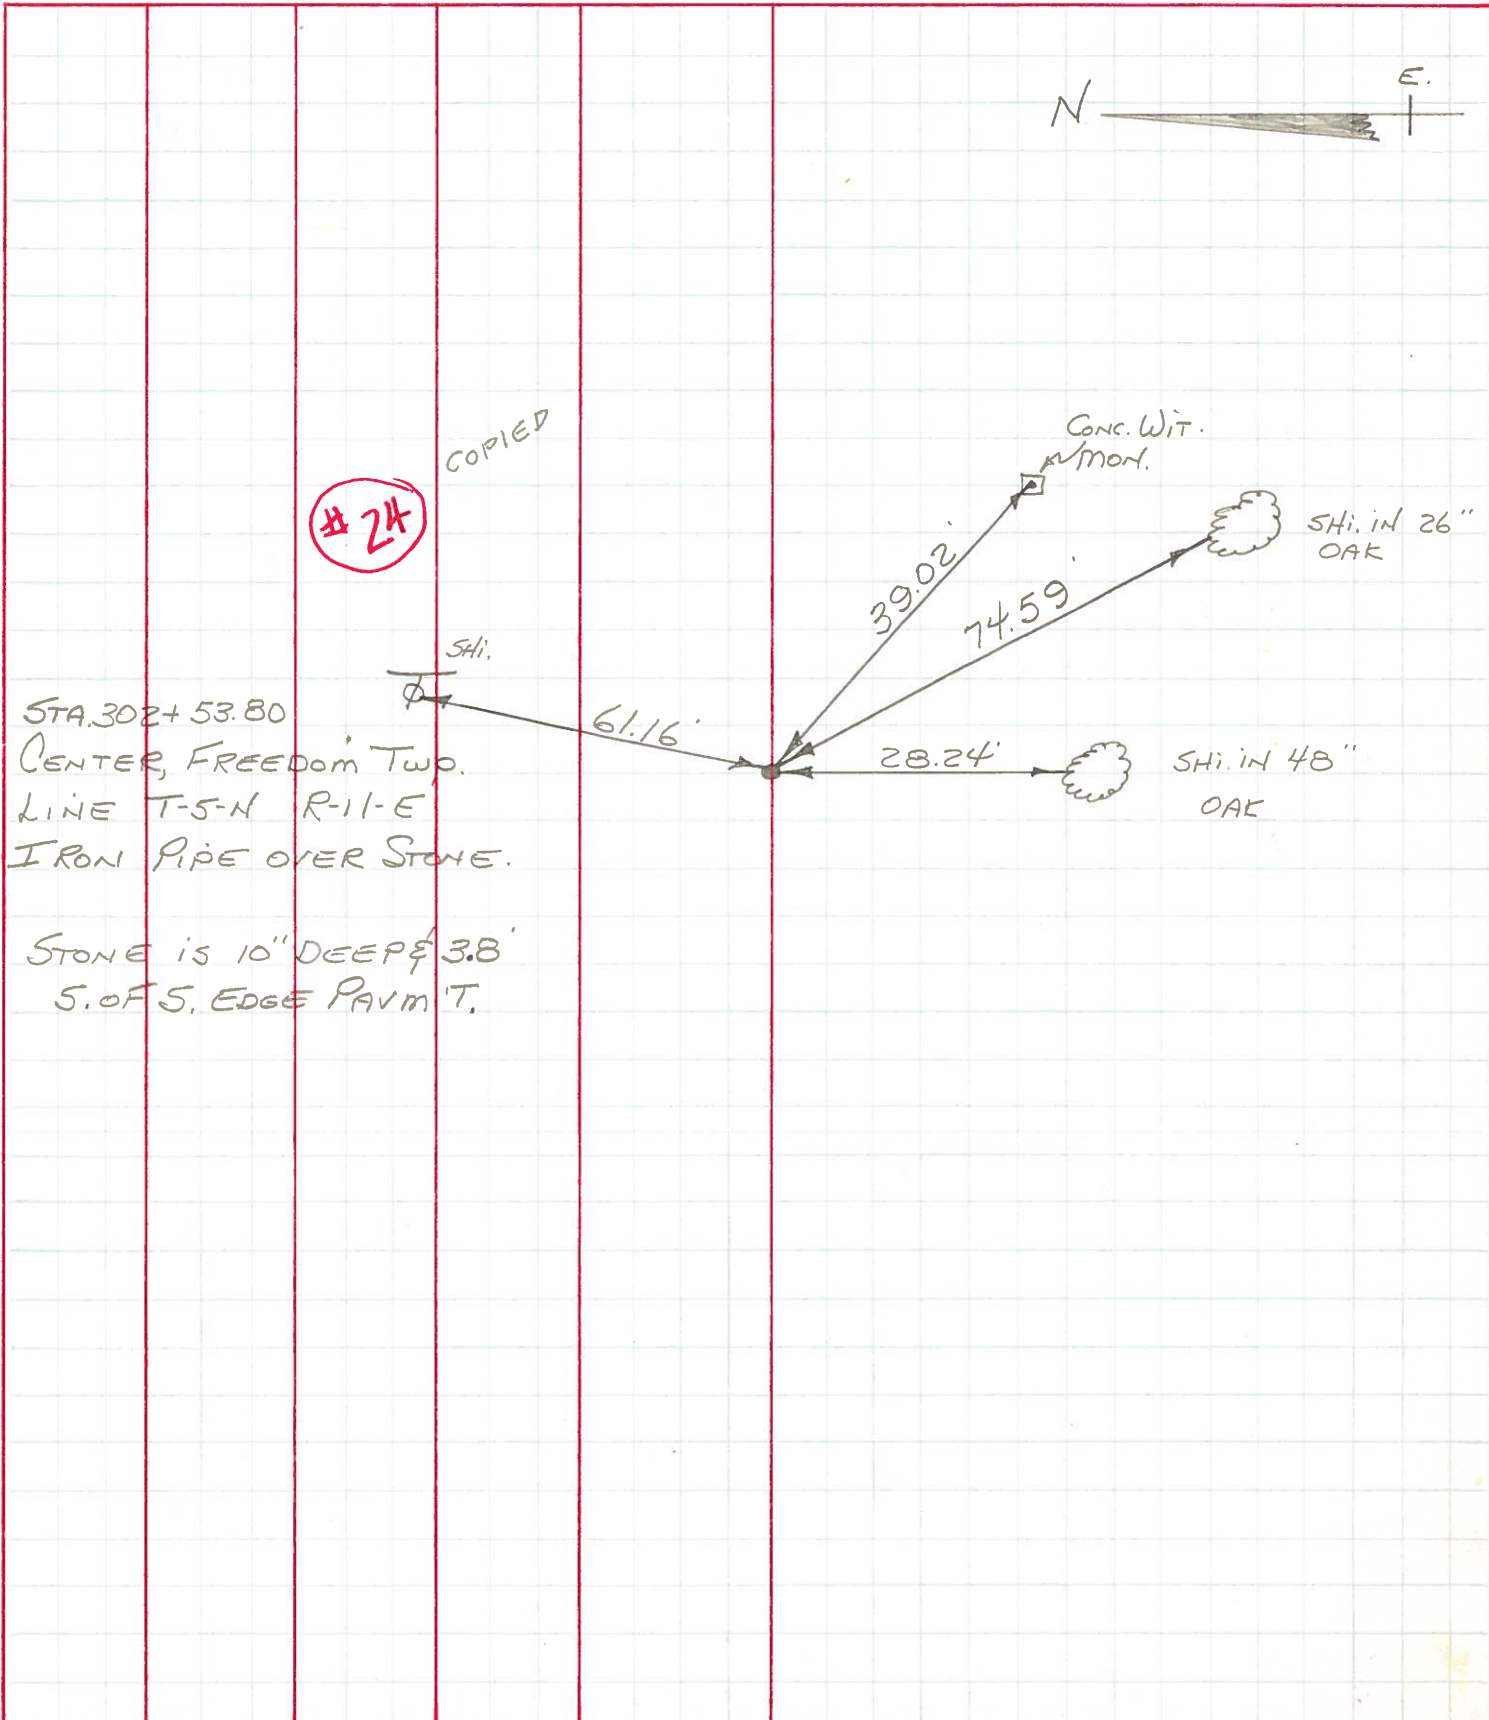 N
E.
COPIED
# 24
CONC. WIT.
MON.
39.02'
SHI. IN 26"
OAK
74.59'
SHI.
61.16'
28.24'
SHI. IN 48"
OAK
STA. 302+53.80
CENTER, FREEDOM TWP.
LINE T-5-N R-11-E
IRON PIPE OVER STONE.
STONE IS 10" DEEP & 3.8'
S. OF S. EDGE PAVM'T.